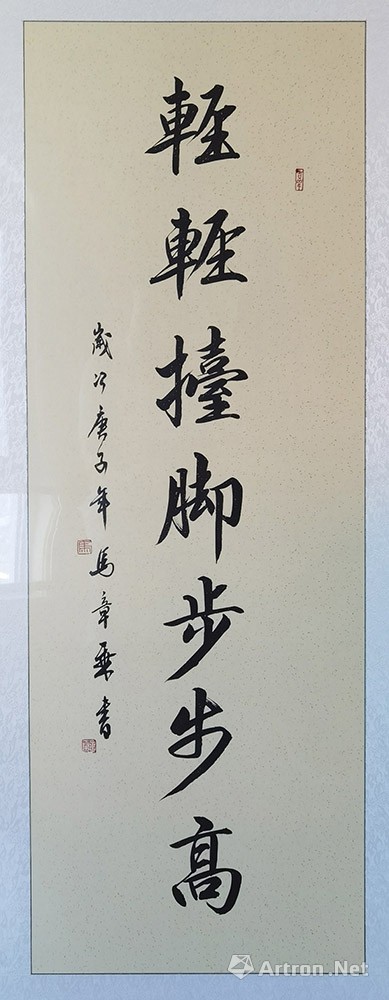 輕輕擡脚步步高
歲次庚子年馬章乘書
Artron.Net